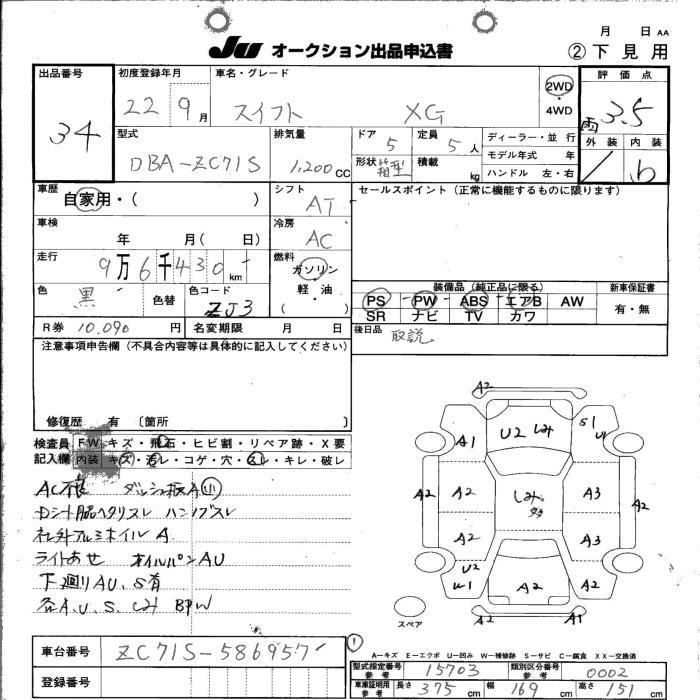 月 日 AA
JU オークション出品申込書 ②下見用
出品番号 初度登録年月 車名・グレード 2WD・4WD 評価点
34 22 9月 スイフト XG 雨 3.5
型式 排気量 ドア 5 定員 5人 ディーラー・並行 外装 内装
DBA-ZC71S 1,200cc 形状 箱型 積載 kg モデル年式 年 / b
ハンドル 左・右
車歴 シフト セールスポイント(正常に機能するものに限ります)
自家用・( ) AT
車検 冷房
年 月( 日) AC
走行 燃料
9万6千430km ガソリン・軽・油( )
色 黒 色替 色コード ZJ3
装備品(純正品に限る) 新車保証書
PS PW ABS エアB AW 有・無
SR ナビ TV カワ
R券 10.090円 名変期限 月 日 後日品 取説
注意事項申告欄(不具合内容等は具体的に記入してください)
修復歴 有 〔箇所 〕
検査員記入欄 FW キズ・飛石・ヒビ割・リペア跡・X要
内装 キズ・汚レ・コゲ・穴・スレ・キレ・破レ
AC不良 ダッシュ板A小
Dシート脇ヘタリスレ ハンドブスレ
社外アルミホイルA
ライトあせ オイルパンAU
下廻りAU、S有
各A.U.S.しみ BPW
A2
A1 U2 しみ S1 U1
A2 A2 しみ 多 A3 A2
A2 A3
U2 W1 A2 A2
A2 A1
スペア
A-キズ E-エクボ U-凹み W-補修跡 S-サビ C-腐食 XX-交換済
車台番号 ZC71S-586957
登録番号
型式指定番号 参考 15703 類別区分番号 参考 0002
車庫証明用 参考 長さ 375cm 幅 169cm 高さ 151cm